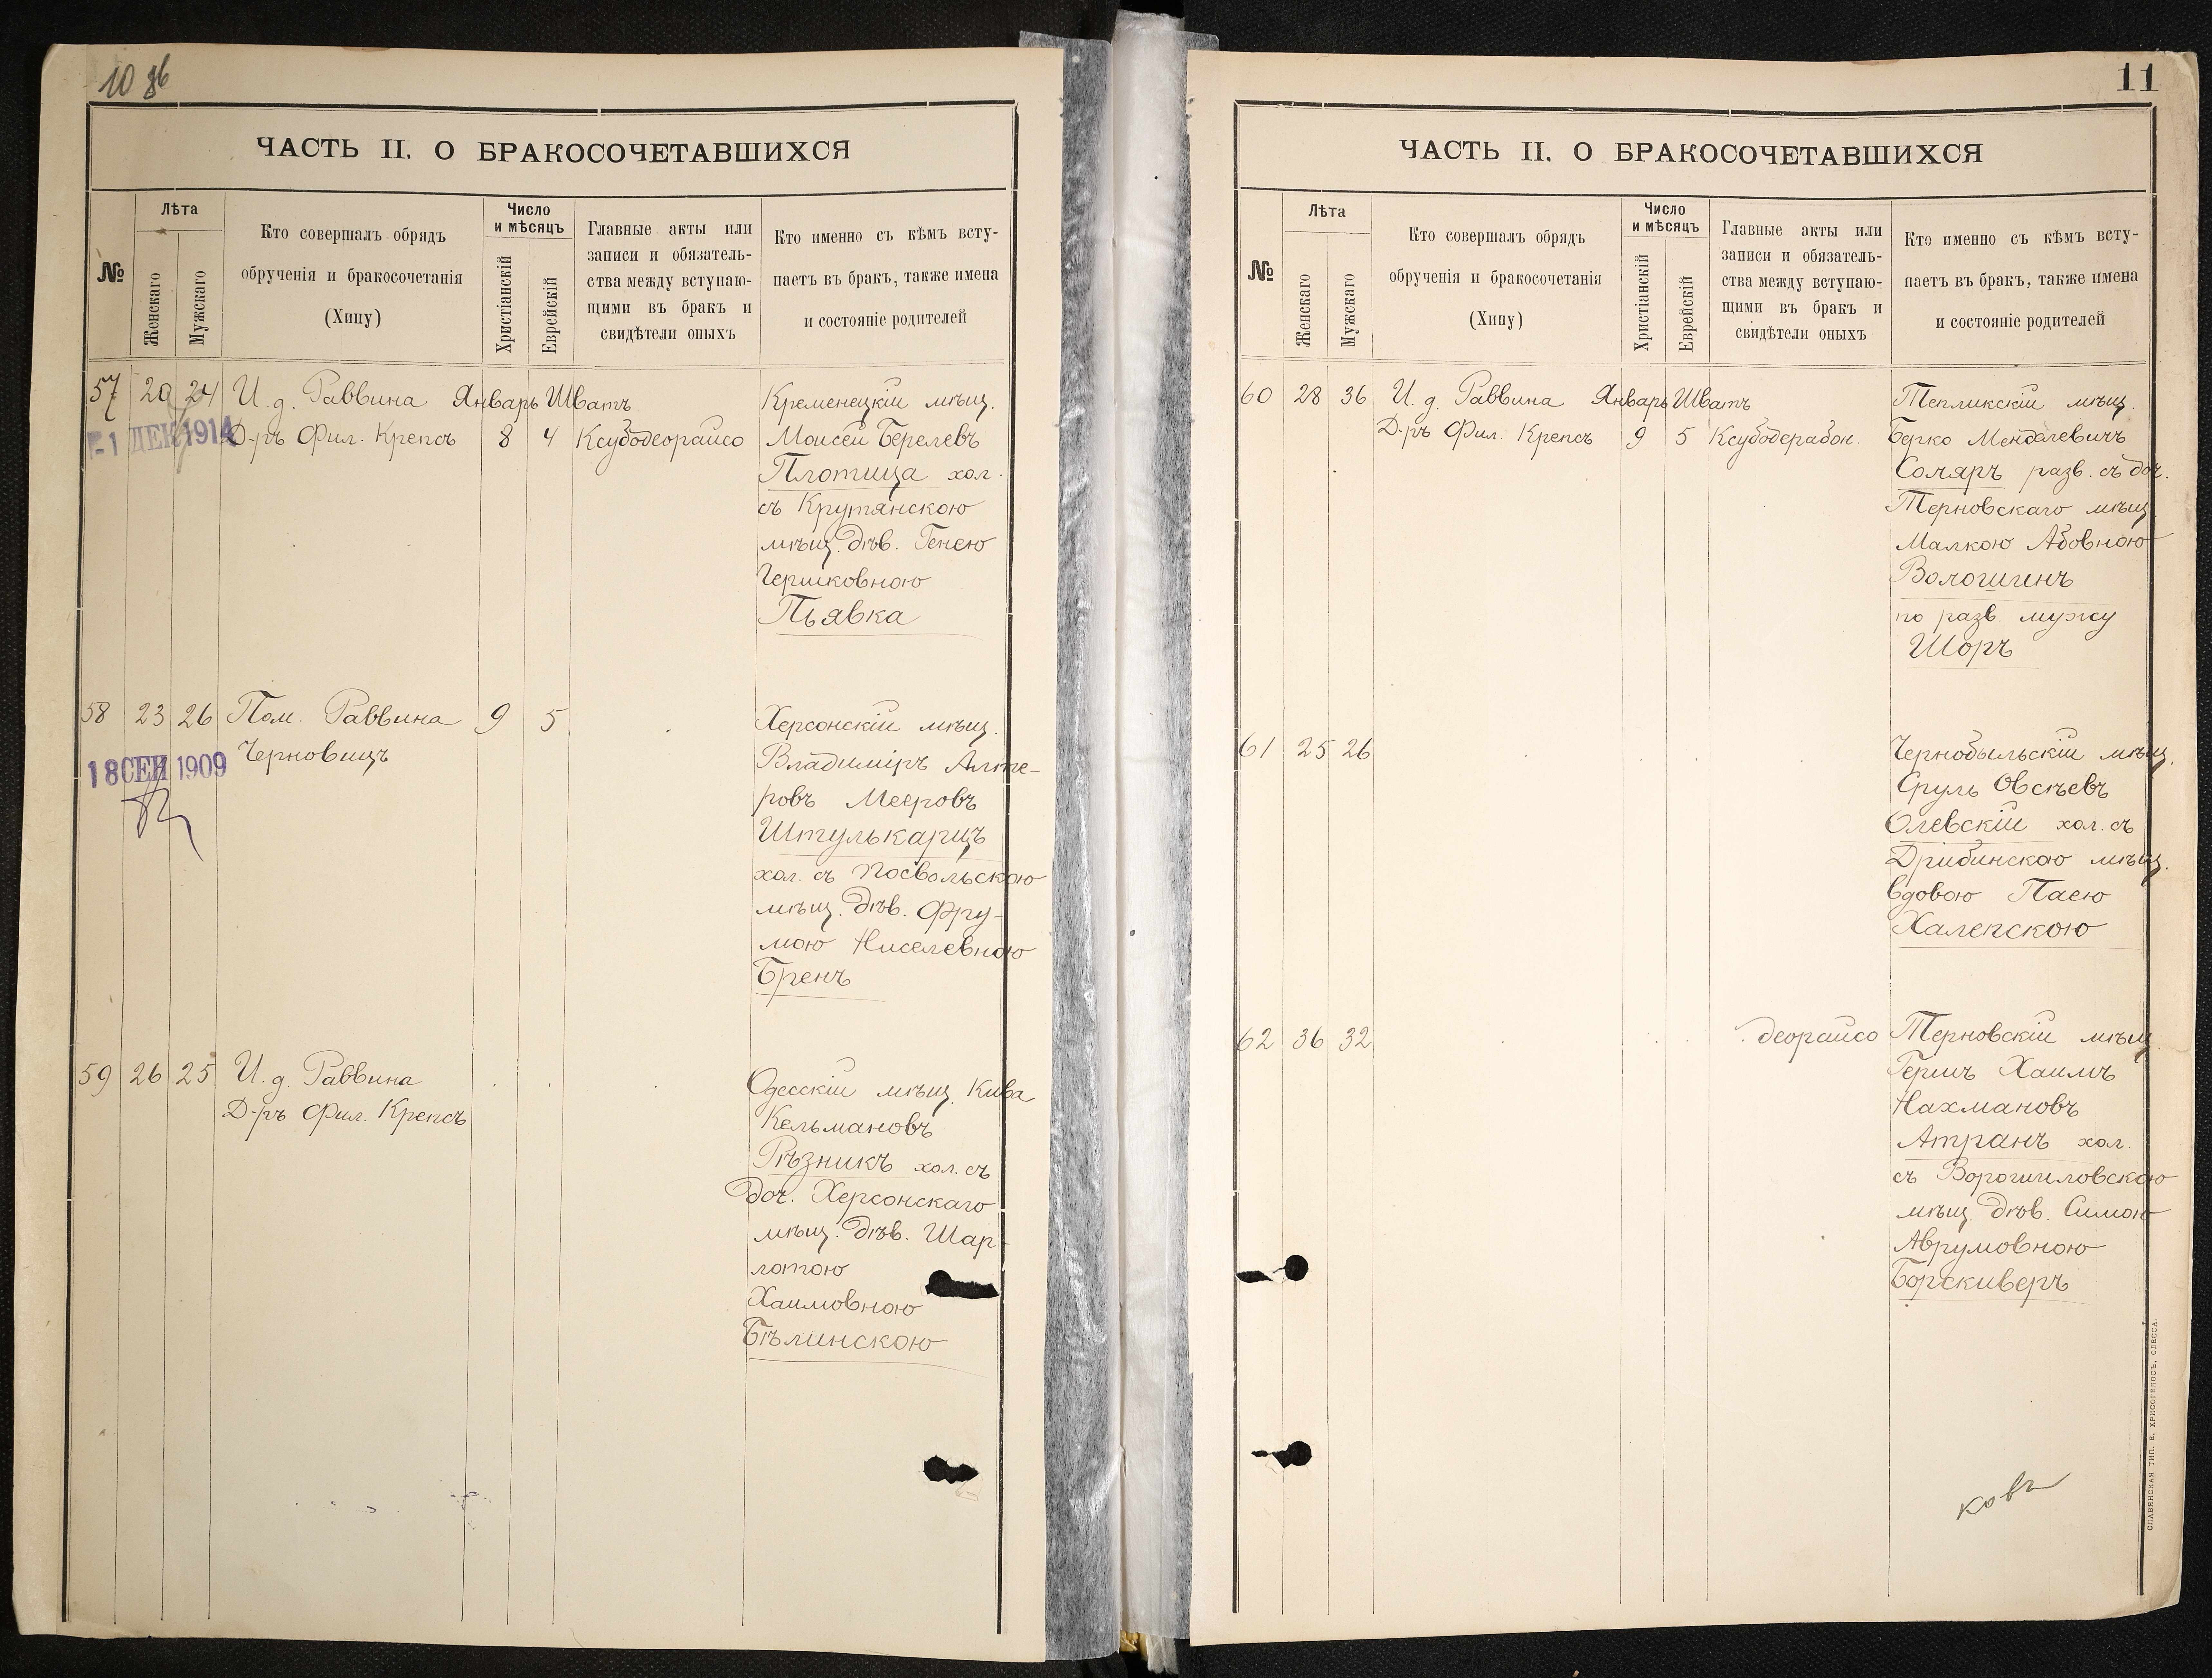 10 зв
ЧАСТЬ II. О БРАКОСОЧЕТАВШИХСЯ
№
Лѣта
Женскаго
Мужскаго
Кто совершалъ обрядъ
обрученія и бракосочетанія
(Хипу)
Число
и мѣсяцъ
Христіанскій
Еврейскій
Главные акты или
записи и обязатель-
ства между вступаю-
щими въ бракъ и
свидѣтели оныхъ
Кто именно съ кѣмъ всту-
паетъ въ бракъ, также имена
и состояніе родителей
57 20 24 И. д. Раввина Январь Шватъ Кременецкій мѣщ.
-1 ДЕК 1914
Д-ръ Фил. Крепсъ 8 4 Ксубодеорайсо Моисей Берелевъ
Плотица хол.
съ Крутянскою
мѣщ. дѣв. Генею
Гершковною
Пьявка
58 23 26 Пом. Раввина 9 5 Херсонскій мѣщ.
18 СЕН 1909
Черновицъ Владиміръ Алте-
ровъ Мееровъ
Штулькарцъ
хол. съ Посвольскою
мѣщ. дѣв. Фру-
мою Ниселевною
Бренъ
59 26 25 И. д. Раввина Одесскій мѣщ. Кива
Д-ръ Фил. Крепсъ Кельмановъ
Рѣзникъ хол. съ
доч. Херсонскаго
мѣщ. дѣв. Шар-
лотою
Хаимовною
Бѣлинскою
11
ЧАСТЬ II. О БРАКОСОЧЕТАВШИХСЯ
№
Лѣта
Женскаго
Мужскаго
Кто совершалъ обрядъ
обрученія и бракосочетанія
(Хипу)
Число
и мѣсяцъ
Христіанскій
Еврейскій
Главные акты или
записи и обязатель-
ства между вступаю-
щими въ бракъ и
свидѣтели оныхъ
Кто именно съ кѣмъ всту-
паетъ въ бракъ, также имена
и состояніе родителей
60 28 36 И. д. Раввина Январь Шватъ Тепликскій мѣщ.
Д-ръ Фил. Крепсъ 9 5 Ксубодерабон. Берко Менделевичъ
Соляръ разв. съ доч.
Терновскаго мѣщ.
Малкою Абовною
Вологшенъ
по разв. мужу
Шоръ
61 25 26 Чернобыльскій мѣщ.
Сруль Овсѣевъ
Олевскій хол. съ
Дрибинскою мѣщ.
вдовою Паею
Халепскою
62 36 32 деорайсо Терновскій мѣщ.
Гершъ Хаимъ
Нахмановъ
Атранъ хол.
съ Ворошиловскою
мѣщ. дѣв. Симою
Аврумовною
Борскиверъ
ковъ
СЛАВЯНСКАЯ ТИП. Е. ХРИСОГЕЛОСЪ, ОДЕССА.